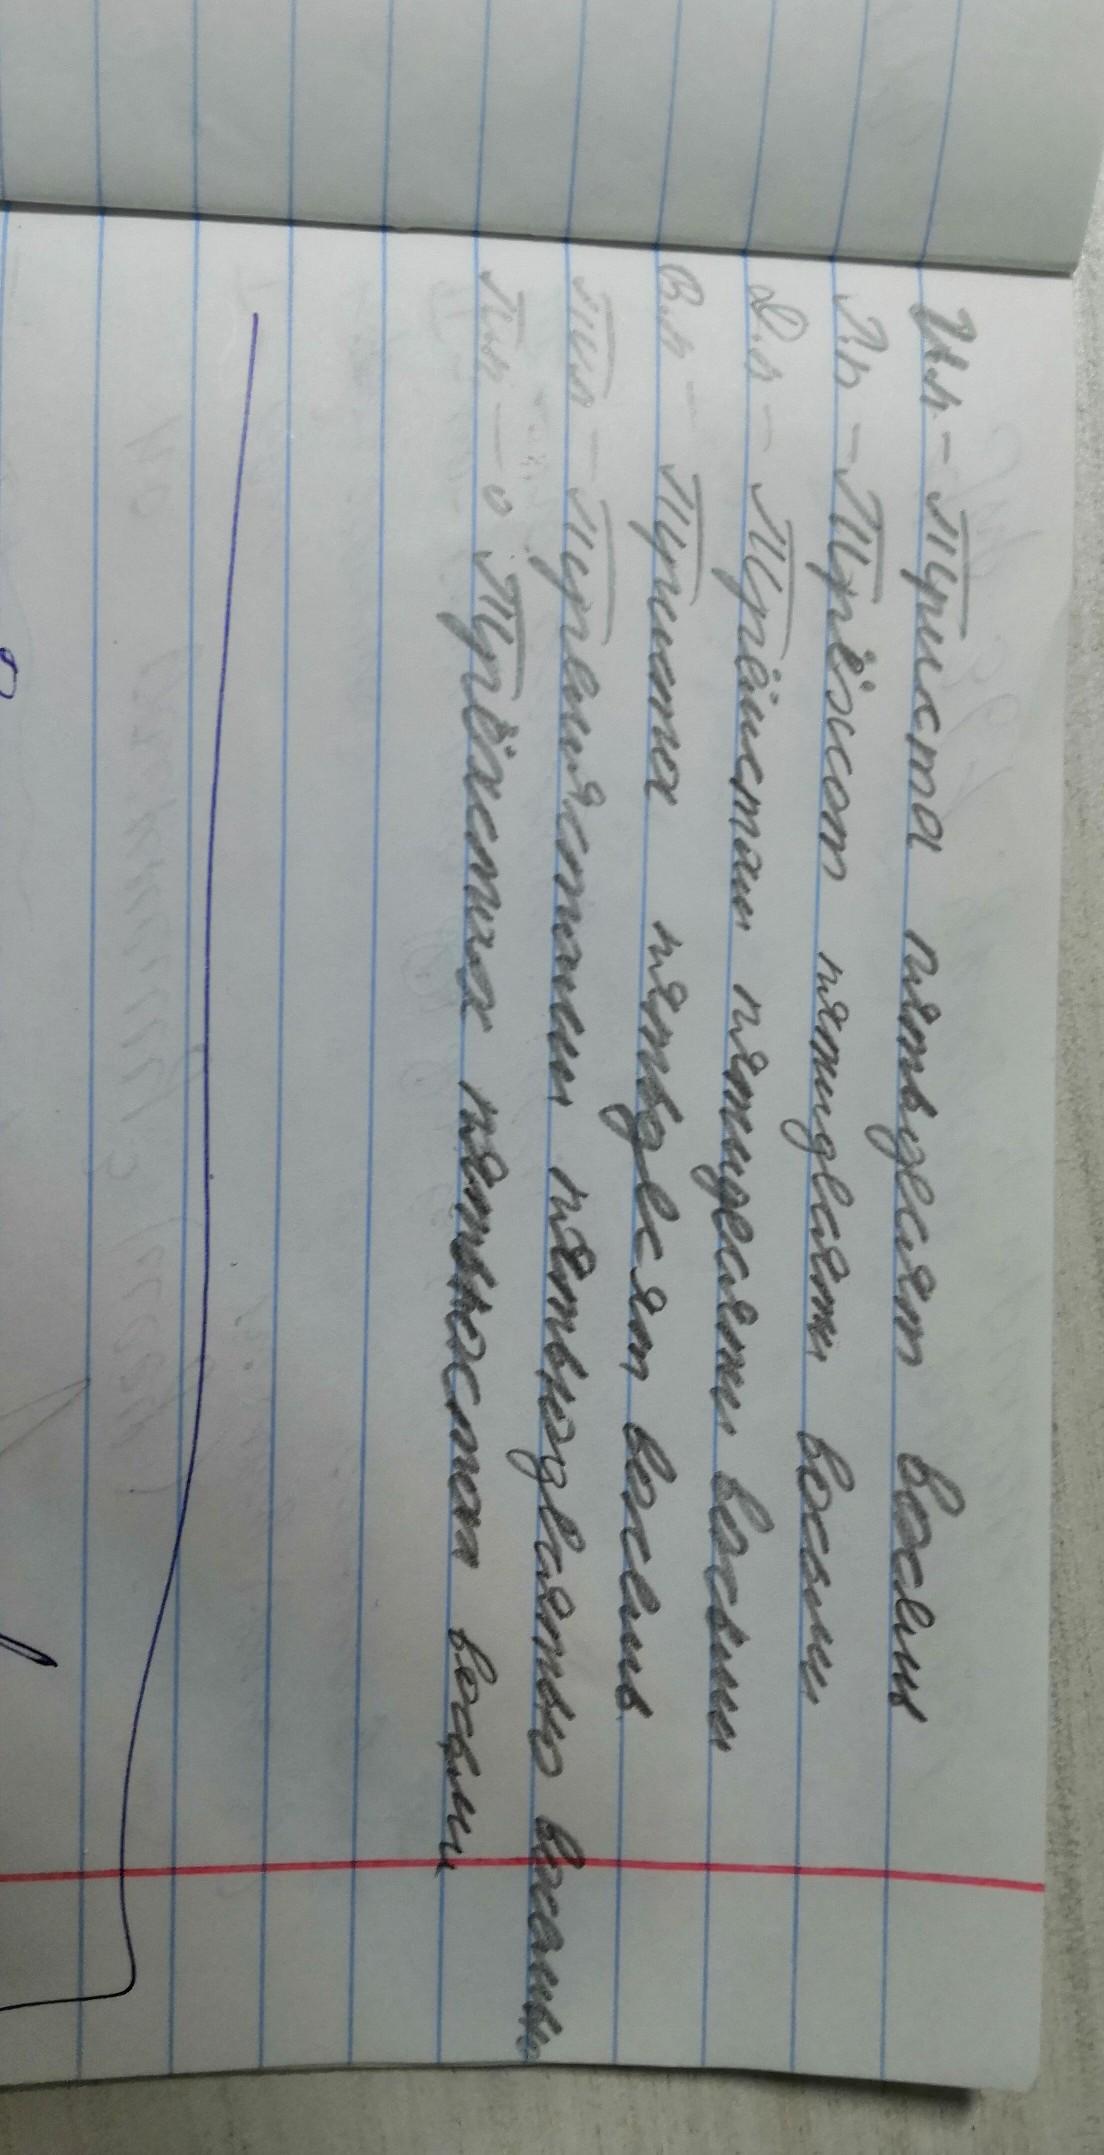 И.п - Триста пятьдесят восемь
Р.п - Трёхсот пятидесяти восьми
Д.п - Трёмстам пятидесяти восьми
В.п - Триста пятьдесят восемь
Т.п - Тремястами пятьюдесятью восемью
П.п - о Трёхстах восьми